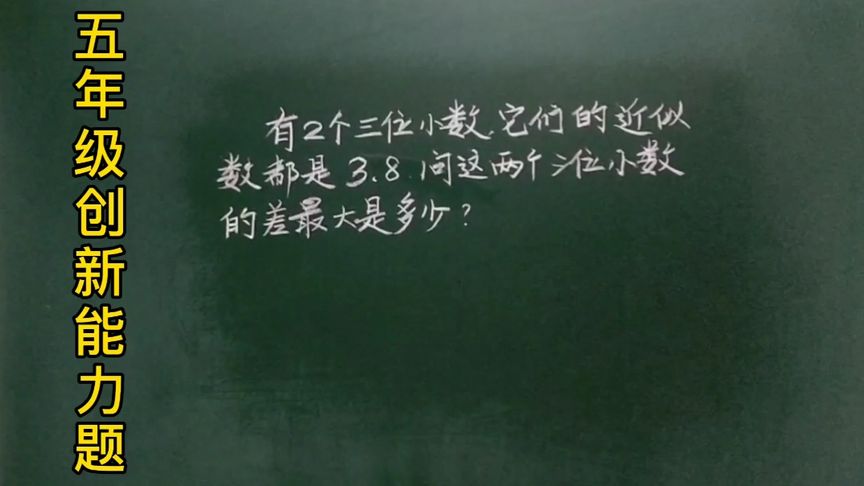 五年级创新能力题
有2个三位小数，它们的近似
数都是3.8.问这两个三位小数
的差最大是多少？